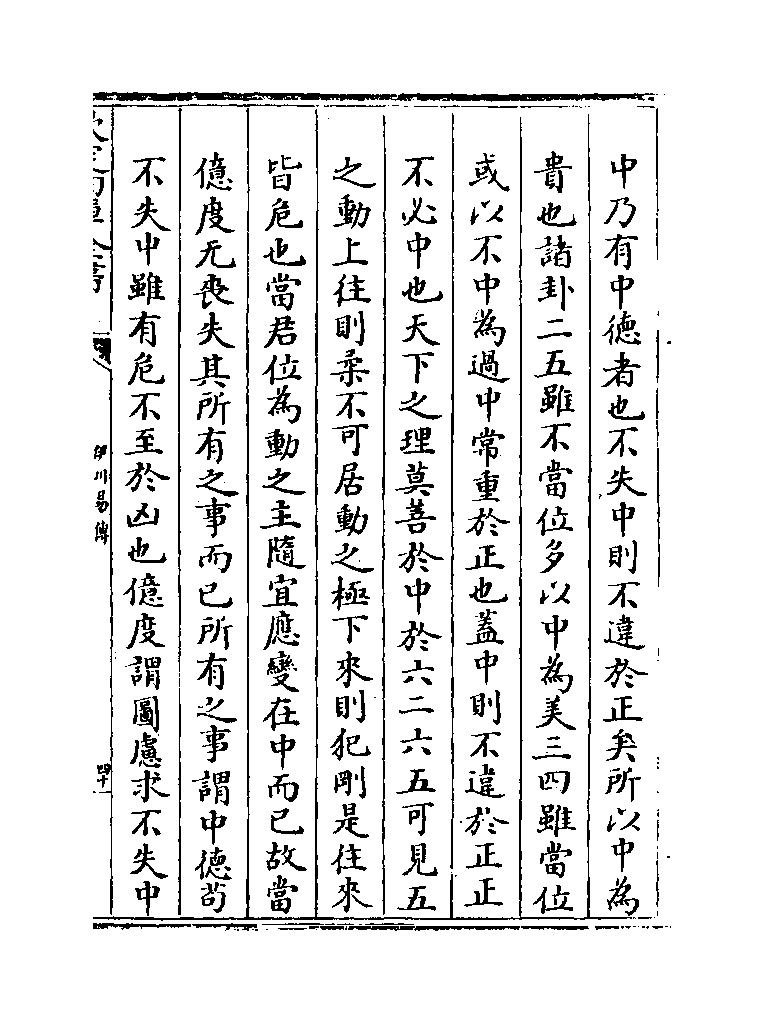 中乃有中德者也不失中則不違於正矣所以中為
貴也諸卦二五雖不當位多以中為美三四雖當位
或以不中為過中常重於正也蓋中則不違於正正
不必中也天下之理莫善於中於六二六五可見五
之動上往則柔不可居動之極下來則犯剛是往來
皆危也當君位為動之主隨宜應變在中而已故當
億度无喪失其所有之事而已所有之事謂中德苟
不失中雖有危不至於凶也億度謂圖慮求不失中
欽定四庫全書
伊川易傳
四十一